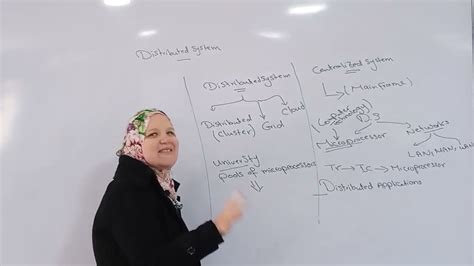 Distributed System
Distributed System
Distributed (Cluster)
Grid
Cloud
University
Pools of microprocessors
Centralized System
(Mainframe)
Microprocessor
Networks
LAN, MAN,
Tr → Ic → Microprocessor
Distributed Applications